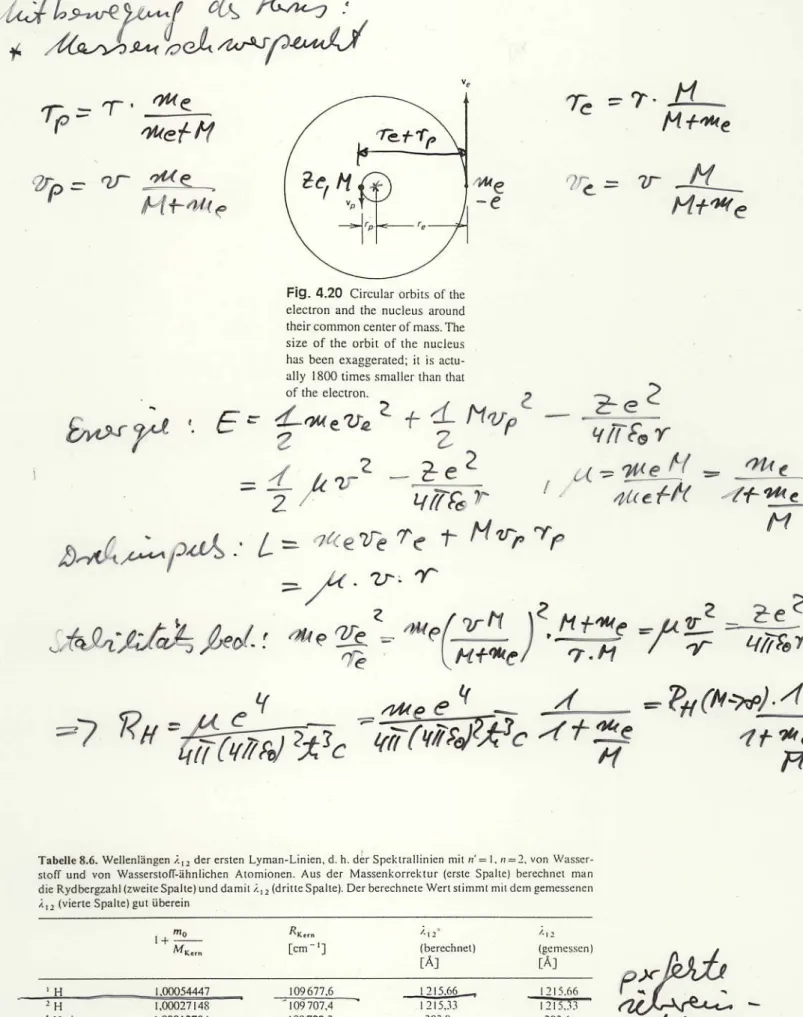 Mitbewegung des Kerns :
* Massenschwerpunkt
r_p = r · m_e / (m_e + M)
r_e = r · M / (M + m_e)
v_p = v m_e / (M + m_e)
v_e = v M / (M + m_e)
v_e
r_e + r_p
Ze, M
m_e
-e
v_p
r_p
r_e
Fig. 4.20 Circular orbits of the
electron and the nucleus around
their common center of mass. The
size of the orbit of the nucleus
has been exaggerated; it is actu-
ally 1800 times smaller than that
of the electron.
Energie : E = 1/2 m_e v_e² + 1/2 M v_p² − Ze² / 4πε₀r
= 1/2 μ v² − Ze² / 4πε₀r , μ = m_e M / (m_e + M) = m_e / (1 + m_e/M)
Drehimpuls : L = m_e v_e r_e + M v_p r_p
= μ · v · r
Stabilitätsbed. : m_e v_e² / r_e = m_e (v M / (M + m_e))² · (M + m_e) / (r · M) = μ v² / r = Ze² / 4πε₀r
=> R_H = μ e⁴ / 4π(4πε₀)²ħ³c = m_e e⁴ / 4π(4πε₀)²ħ³c 1 / (1 + m_e/M) = R_H (M→∞) · 1 / (1 + m_e/M)
Tabelle 8.6. Wellenlängen λ₁₂ der ersten Lyman-Linien, d. h. der Spektrallinien mit n' = 1, n = 2, von Wasser-
stoff und von Wasserstoff-ähnlichen Atomionen. Aus der Massenkorrektur (erste Spalte) berechnet man
die Rydbergzahl (zweite Spalte) und damit λ₁₂ (dritte Spalte). Der berechnete Wert stimmt mit dem gemessenen
λ₁₂ (vierte Spalte) gut überein
1 + m₀ / M_Kern R_Kern λ₁₂ λ₁₂
[cm⁻¹] (berechnet) (gemessen)
[Å] [Å]
¹H 1,00054447 109 677,6 1 215,66 1 215,66
²H 1,00027148 109 707,4 1 215,33 1 215,33
perfekte
überein-